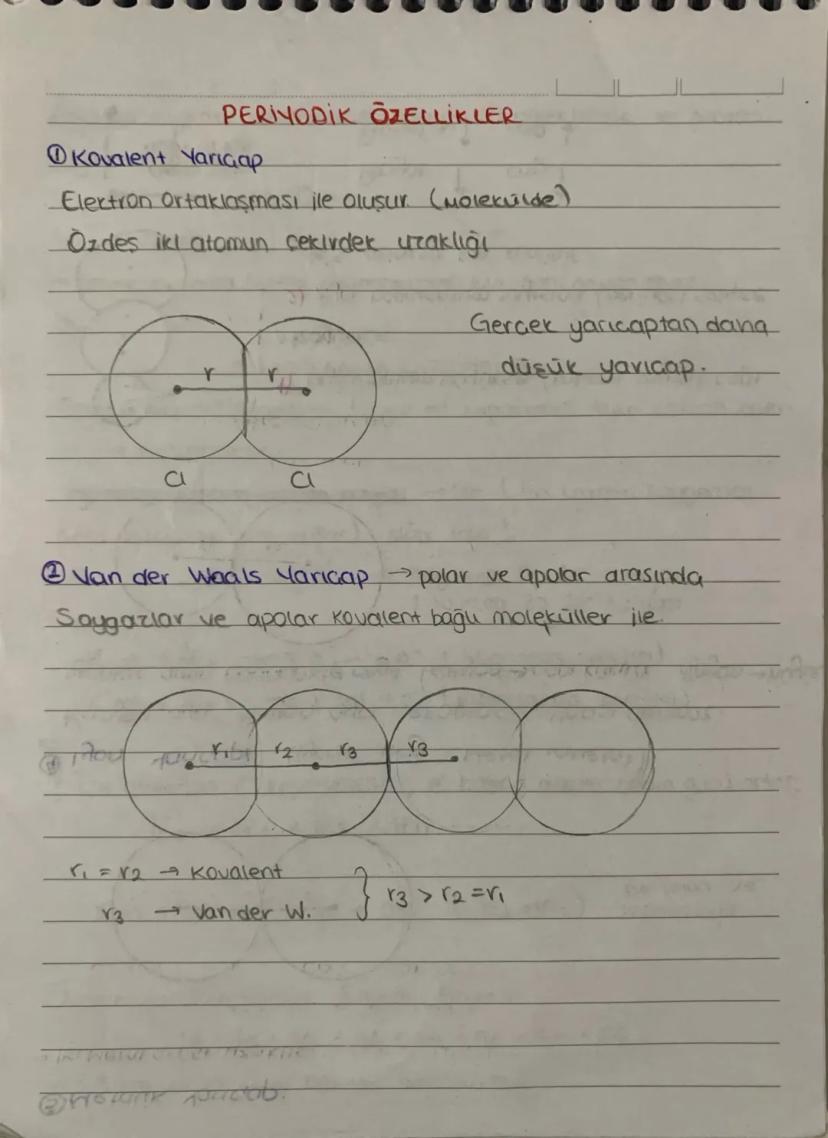 PERİYODİK ÖZELLİKLER
① Kovalent Yarıçap
Elektron Ortaklaşması ile oluşur. (Molekülde)
Özdeş iki atomun çekirdek uzaklığı
Gerçek yarıçaptan daha
düşük yarıçap.
r r
Cl Cl
② Van der Waals Yarıçap → polar ve apolar arasında
Soygazlar ve apolar kovalent bağlı moleküller ile
r₁ r₂ r₃ r₃
r₁ = r₂ → Kovalent
r₃ → Van der W.
} r₃ > r₂ = r₁